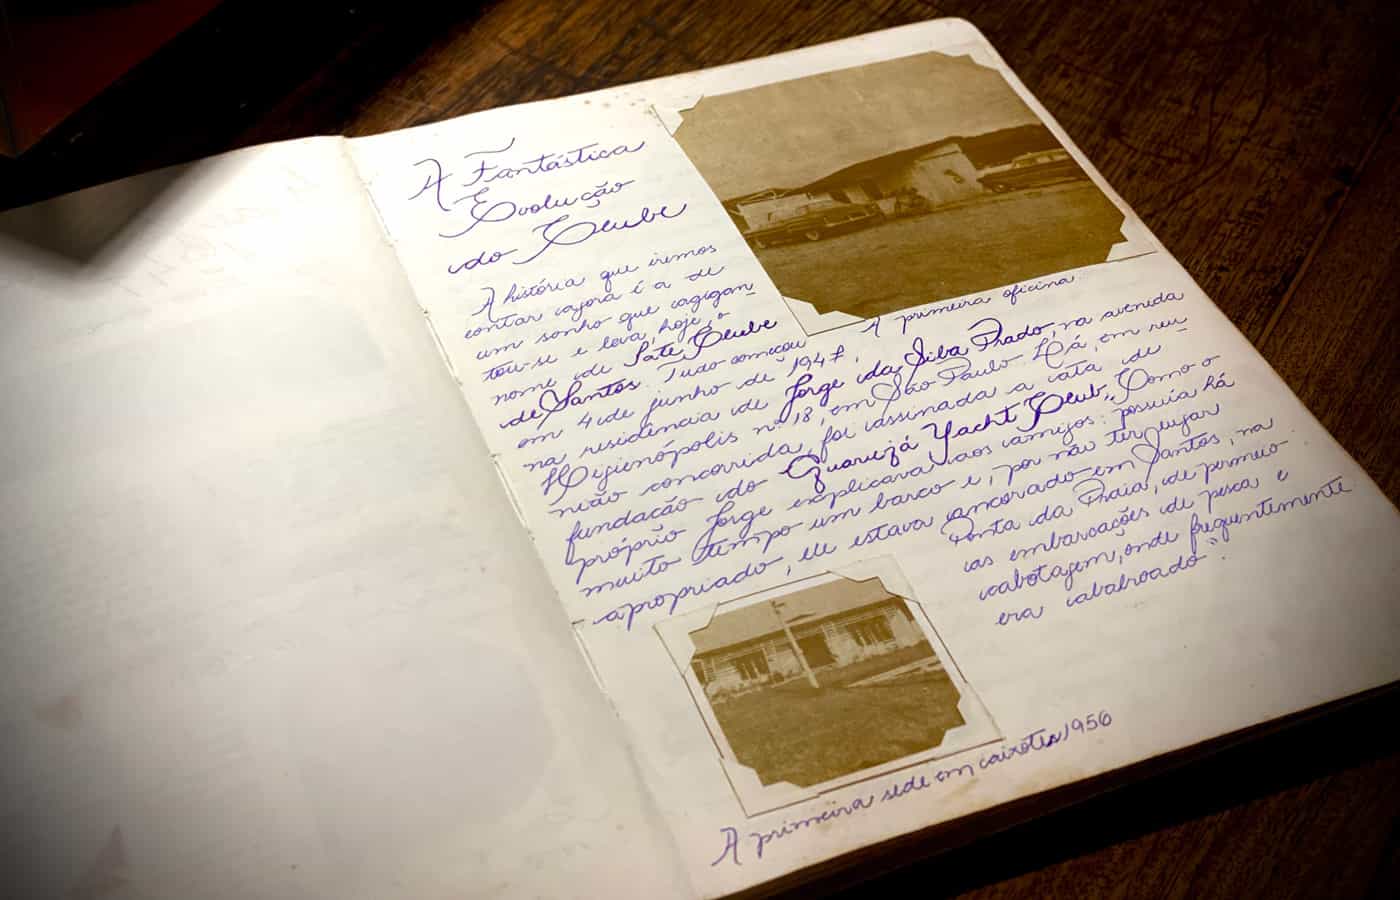 A Fantástica
Evolução
do Clube
A história que iremos
contar agora é a de
um sonho que agigan
tou-se e leva, hoje, o
nome de Iate Clube
de Santos. Tudo começou
em 4 de junho de 1947,
na residência de Jorge da Silva Prado, na avenida
Higienópolis nº 18, em São Paulo. Lá, em reu
nião concorrida, foi assinada a ata de
fundação do Guarujá Yacht Club. Como o
próprio Jorge explicava aos amigos: possuia há
muito tempo um barco e, por não ter lugar
apropriado, ele estava ancorado em Santos, na
Ponta da Praia, de permeio
as embarcações de pesca e
cabotagem, onde frequentemente
era abalroado".
A primeira oficina.
A primeira sede em caixotes 1956